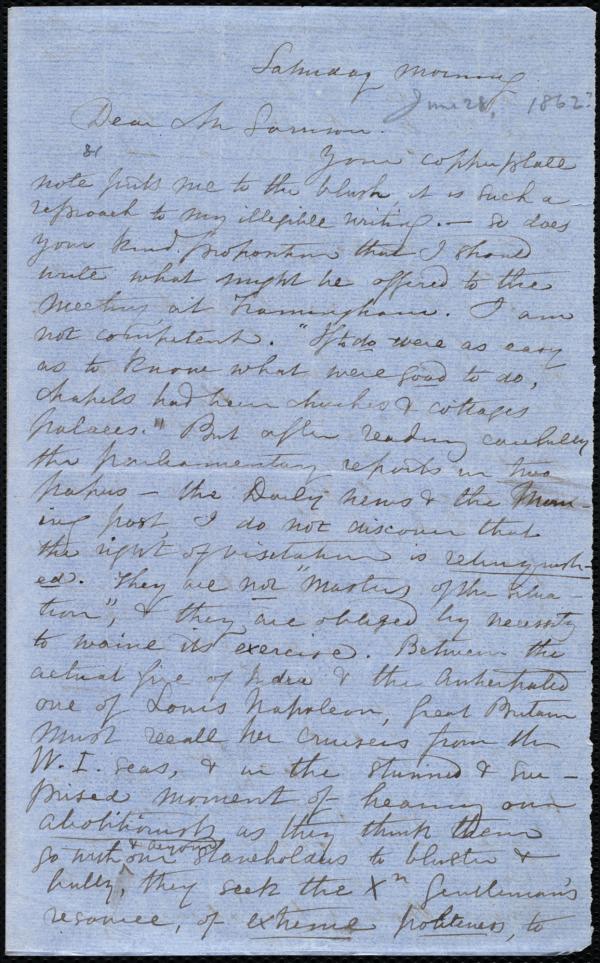 Saturday morning.
June 28, 1862?
Dear Mr Garrison.
Your copperplate
note puts me to the blush, it is such a
reproach to my illegible writing. — So does
your kind proposition that I should
write what might be offered to the
meeting at Framingham. I am
not competent. "If to do were as easy
as to know what were good to do,
chapels had been churches & cottages
palaces." But after reading carefully
the parliamentary reports in two
papers — the Daily news & the Morn-
ing post, I do not discover that
the right of visitation is relinquish-
ed. They are not "Masters of the situa-
tion", & they are obliged by necessity
to waive its exercise. Between the
actual fire of India & the anticipated
one of Louis Napoleon, Great Britain
must recall her cruisers from the
W. I. seas, & in the stunned & sur-
prised moment of hearing our
abolitionists as they think them
go with & beyond our slaveholders to bluster &
bully, they seek the Xn gentleman's
resource, of extreme politeness, to